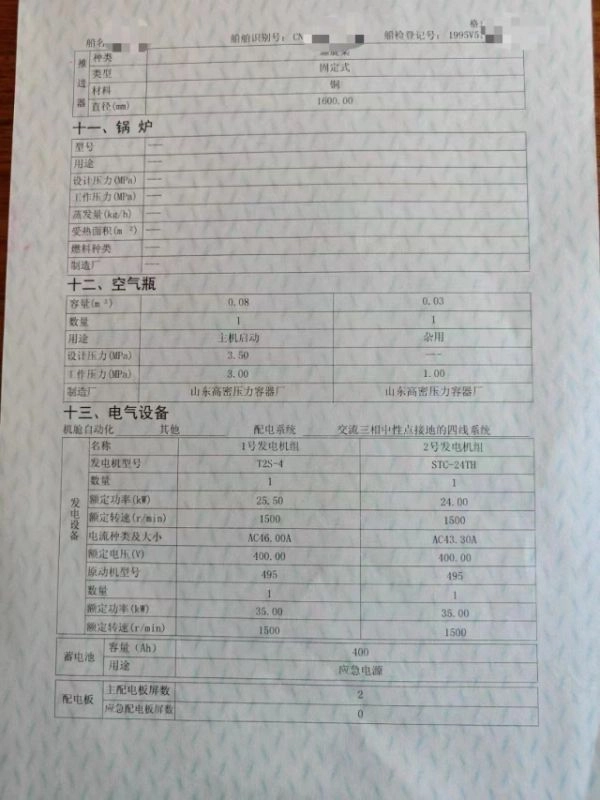 船名 船舶识别号：CN 船检登记号：1995V5
格：
推进器
种类 螺旋桨
类型 固定式
材料 铜
直径(mm) 1600.00
十一、锅 炉
型号 ---
用途 ---
设计压力(MPa) ---
工作压力(MPa) ---
蒸发量(kg/h) ---
受热面积(m ²) ---
燃料种类 ---
制造厂 ---
十二、空气瓶
容量(m ³) 0.08 0.03
数量 1 1
用途 主机启动 杂用
设计压力(MPa) 3.50 ---
工作压力(MPa) 3.00 1.00
制造厂 山东高密压力容器厂 山东高密压力容器厂
十三、电气设备
机舱自动化 其他 配电系统 交流三相中性点接地的四线系统
发电设备
名称 1号发电机组 2号发电机组
发电机型号 T2S-4 STC-24TH
数量 1 1
额定功率(kW) 25.50 24.00
额定转速(r/min) 1500 1500
电流种类及大小 AC46.00A AC43.30A
额定电压(V) 400.00 400.00
原动机型号 495 495
数量 1 1
额定功率(kW) 35.00 35.00
额定转速(r/min) 1500 1500
蓄电池
容量（Ah） 400
用途 应急电源
配电板
主配电板屏数 2
应急配电板屏数 0